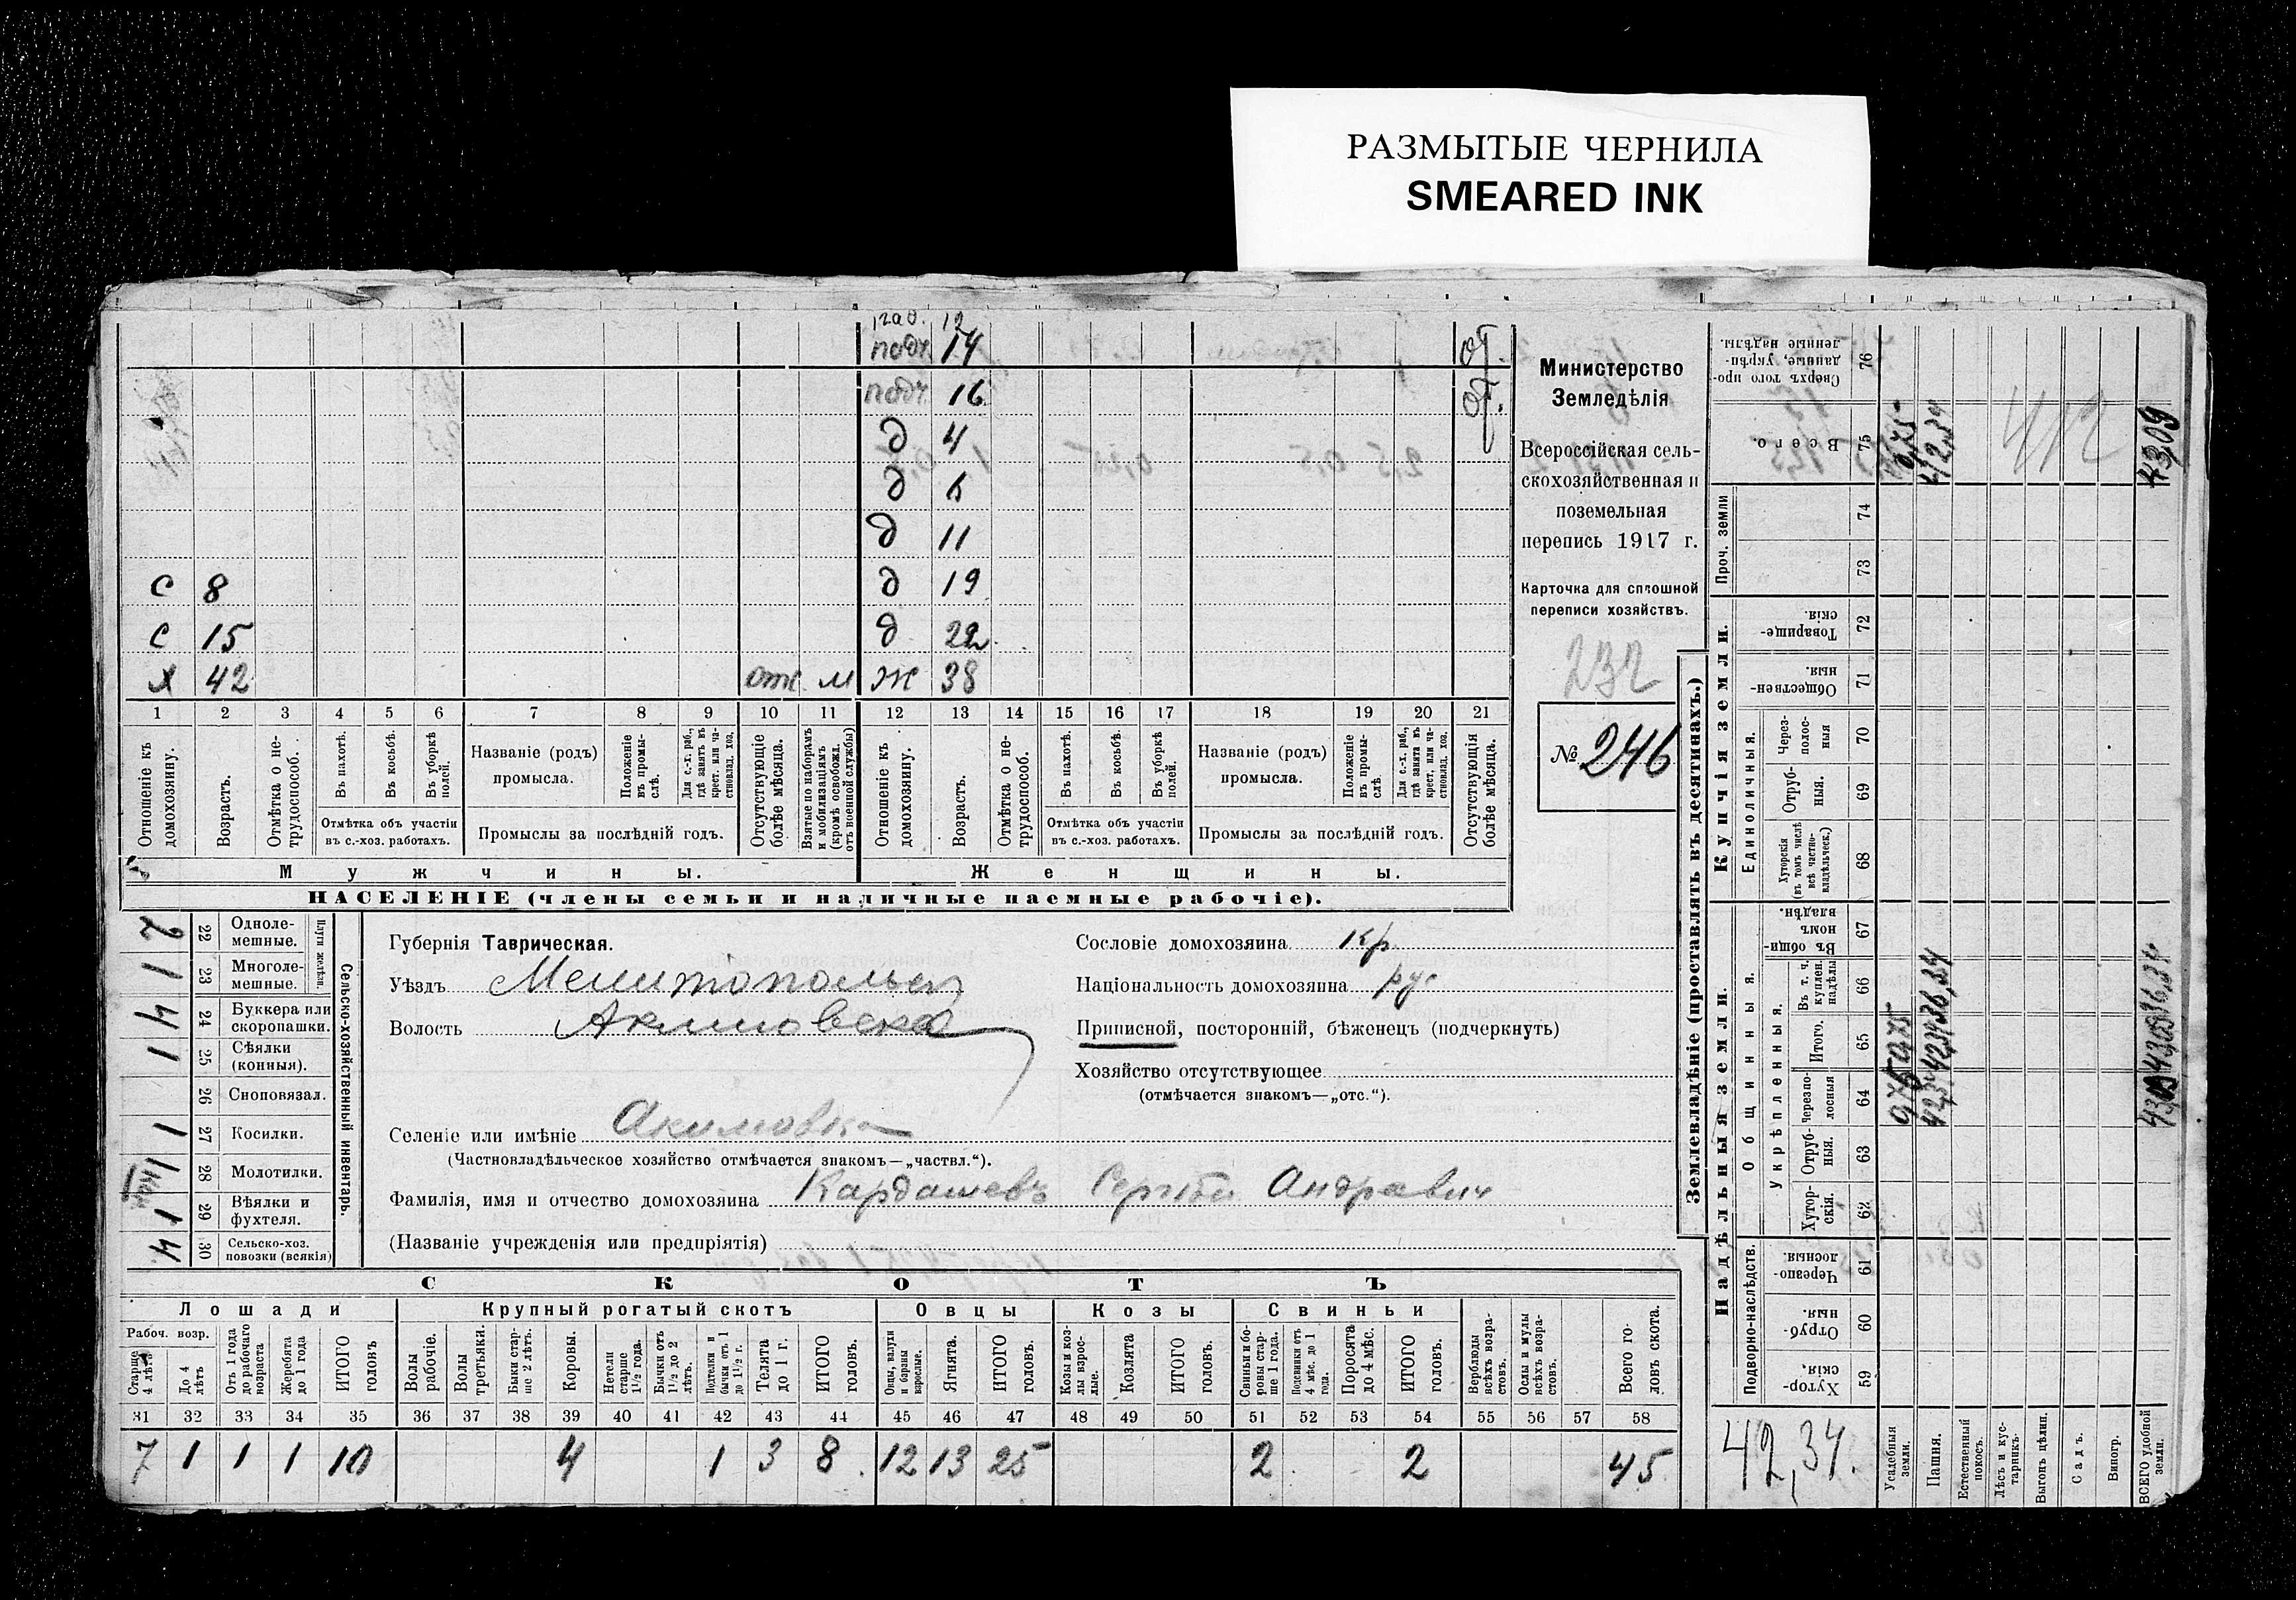 РАЗМЫТЫЕ ЧЕРНИЛА
SMEARED INK
12
подч. 14 от.
подч. 16 от.
д 4
д 6
д 11
с 8 д 19
с 15 д 22
х 42 отс. м ж 38
1 2 3 4 5 6 7 8 9 10 11 12 13 14 15 16 17 18 19 20 21
Отношеніе къ домохозяину.
Возрастъ.
Отмѣтка о не-трудоспособ.
Въ пахотѣ.
Въ косьбѣ.
Въ уборкѣ полей.
Отмѣтка объ участіи въ с.-хоз. работахъ.
Названіе (родъ) промысла.
Положеніе въ промы-слѣ.
Для с.-х. раб., гдѣ занятъ въ крест. или ча-стновлад. хоз.
Промыслы за послѣдній годъ.
Отсутствующіе болѣе мѣсяца.
Взятые по наборамъ и мобилизаціямъ (кромѣ освобожд. отъ военной службы)
Отношеніе къ домохозяину.
Возрастъ.
Отмѣтка о не-трудоспособ.
Въ пахотѣ.
Въ косьбѣ.
Въ уборкѣ полей.
Отмѣтка объ участіи въ с.-хоз. работахъ.
Названіе (родъ) промысла.
Положеніе въ промы-слѣ.
Для с.-х. раб., гдѣ занята въ крест. или ча-стновлад. хоз.
Промыслы за послѣдній годъ.
Отсутствующія болѣе мѣсяца.
Мужчины.
Женщины.
НАСЕЛЕНІЕ (члены семьи и наличные наемные рабочіе).
Министерство
Земледѣлія
Всероссійская сель-
скохозяйственная и
поземельная
перепись 1917 г.
Карточка для сплошной
переписи хозяйствъ.
232
№ 246
Сельско-хозяйственный инвентарь.
Плуги желѣзн.
2 22 Одноле-мешные.
1 23 Многоле-мешные.
14 24 Буккера или скоропашки.
1 25 Сѣялки (конныя).
26 Сноповязал.
1 27 Косилки.
1 28 Молотилки.
1 29 Вѣялки и фухтеля.
4 30 Сельско-хоз. повозки (всякія)
Губернія Таврическая.
Уѣздъ Мелитопольск
Волость Акимовская
Селеніе или имѣніе Акимовка
(Частновладѣльческое хозяйство отмѣчается знакомъ—„частвл.“).
Фамилія, имя и отчество домохозяина Кардашевъ Сергѣй Андравич
(Названіе учрежденія или предпріятія)
Сословіе домохозяина кр
Національность домохозяина рус
Приписной, посторонній, бѣженец (подчеркнуть)
Хозяйство отсутствующее
(отмѣчается знакомъ—„отс.“).
СКОТЪ
Лошади
Крупный рогатый скотъ
Овцы
Козы
Свиньи
Рабоч. возр.
Старше 4 лѣтъ
До 4 лѣтъ
Отъ 1 года до рабочаго возраста
Жеребята до 1 года
ИТОГО головъ
Волы рабочіе.
Волы третьяки.
Быки стар-ше 2 лѣтъ.
Коровы.
Нетели старше 1½ года.
Бычки отъ 1½ до 2 лѣтъ.
Подтелки и бычки отъ 1 до 1½ г.
Телята до 1 г.
ИТОГО головъ.
Овцы, валухи и бараны взрослые.
Ягнята.
ИТОГО головъ.
Козы и коз-лы взрос-лые.
Козлята
ИТОГО головъ.
Свиньи и бо-ровы стар-ше 1 года.
Подсвинки отъ 4 мѣс. до 1 года.
Поросята до 4 мѣс.
ИТОГО головъ.
Верблюды всѣхъ возра-стовъ.
Ослы и мулы всѣхъ возра-стовъ.
Всего го-ловъ скота.
31 32 33 34 35 36 37 38 39 40 41 42 43 44 45 46 47 48 49 50 51 52 53 54 55 56 57 58
7 1 1 1 10 4 1 3 8 12 13 25 2 2 45
Землевладѣніе (проставлять въ десятинахъ.)
Надѣльныя земли.
Купчія земли.
Проч. земли
Подворно-наслѣдств.
Общинныя.
Укрѣпленныя.
Единоличныя.
Сверхъ того про-данные, укрѣп-ленные надѣлы. 76
Всего. 75
74
73
Товарище-скія. 72
Обществен-ныя. 71
Через-полос-ныя 70
Отруб-ныя. 69
Хуторскія (въ томъ числѣ всѣ частно-владѣльческ.) 68
Въ общи-номъ владѣн. 67
Въ т. ч. куплен. надѣлы 66
Итого. 65
Черезпо-лосныя 64
Отруб-ныя. 63
Хутор-скія. 62
Черезпо-лосныя. 61
Отруб-ныя. 60
Хутор-скія. 59
0,75
42,34
412
43,09
42,34.
Усадебныя земли.
Пашня.
Естественный покосъ.
Лѣсъ и кус-тарникъ.
Выгонъ цѣлин.
Садъ.
Виногр.
ВСЕГО удобной земли.